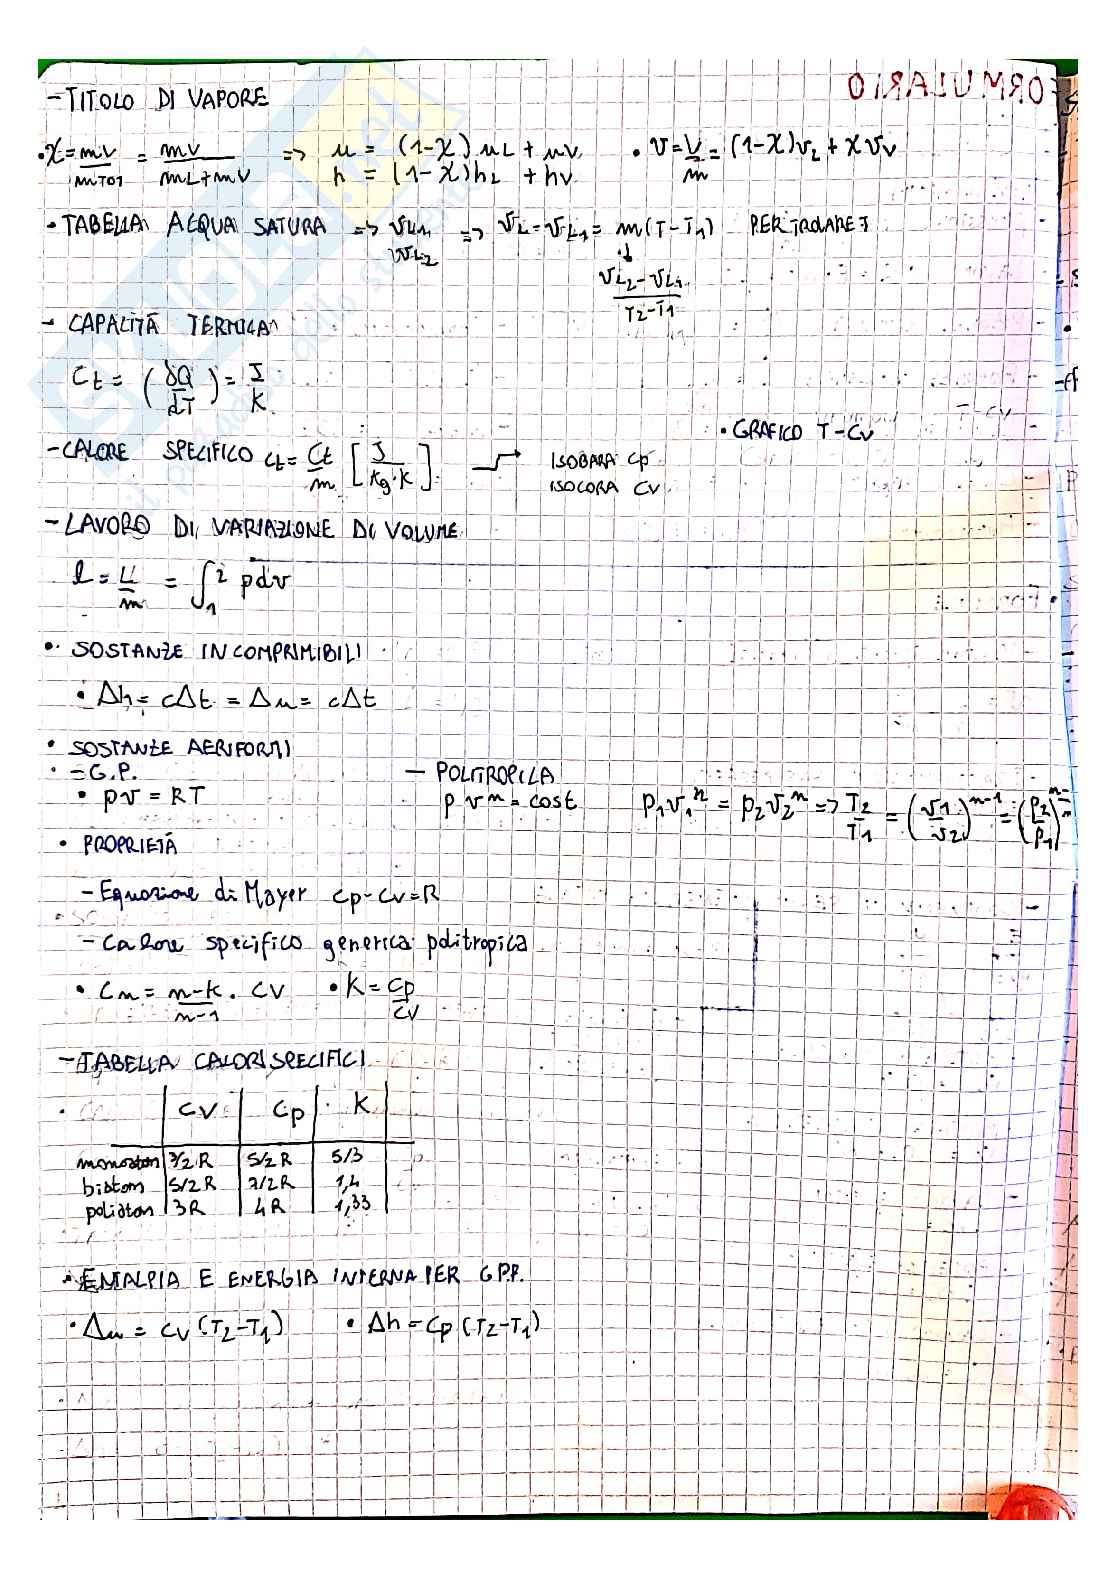 FORMULARIO
- TITOLO DI VAPORE
• X = mv/mTOT = mv/(mL+mv) => u = (1-X) uL + uv
h = (1-X)hL + hv
• v = V/m = (1-X)vL + X vv
• TABELLA ACQUA SATURA => vL1 vL2 => vL - vL1 = m(T-T1)
↓
(vL2-vL1)/(T2-T1)
- CAPACITÀ TERMICA
Ct = (δQ/dT) = J/K
• GRAFICO T-Cv
- CALORE SPECIFICO ct = Ct/m [J/kg·K] → ISOBARA Cp
ISOCORA CV
- LAVORO DI VARIAZIONE DI VOLUME
l = L/m = ∫₁² pdv
• SOSTANZE INCOMPRIMIBILI
• Δh = cΔt = Δu = cΔt
• SOSTANZE AERIFORMI
• = G.P.
• pv = RT
- POLITROPICA
p vⁿ = cost p₁v₁ⁿ = p₂v₂ⁿ => T2/T1 = (v1/v2)ⁿ⁻¹ = (p2/p1)
• PROPRIETÀ
- Equazione di Mayer Cp-Cv=R
- Calore specifico generica politropica
• Cn = (n-k)/(n-1) · CV • K = Cp/CV
- TABELLA CALORI SPECIFICI
CV Cp K
monoatom 3/2 R 5/2 R 5/3
biatom 5/2 R 7/2 R 1,4
poliatom 3R 4R 1,33
• ENTALPIA E ENERGIA INTERNA PER G.P.P.
• Δu = CV (T2-T1) • Δh = Cp (T2-T1)